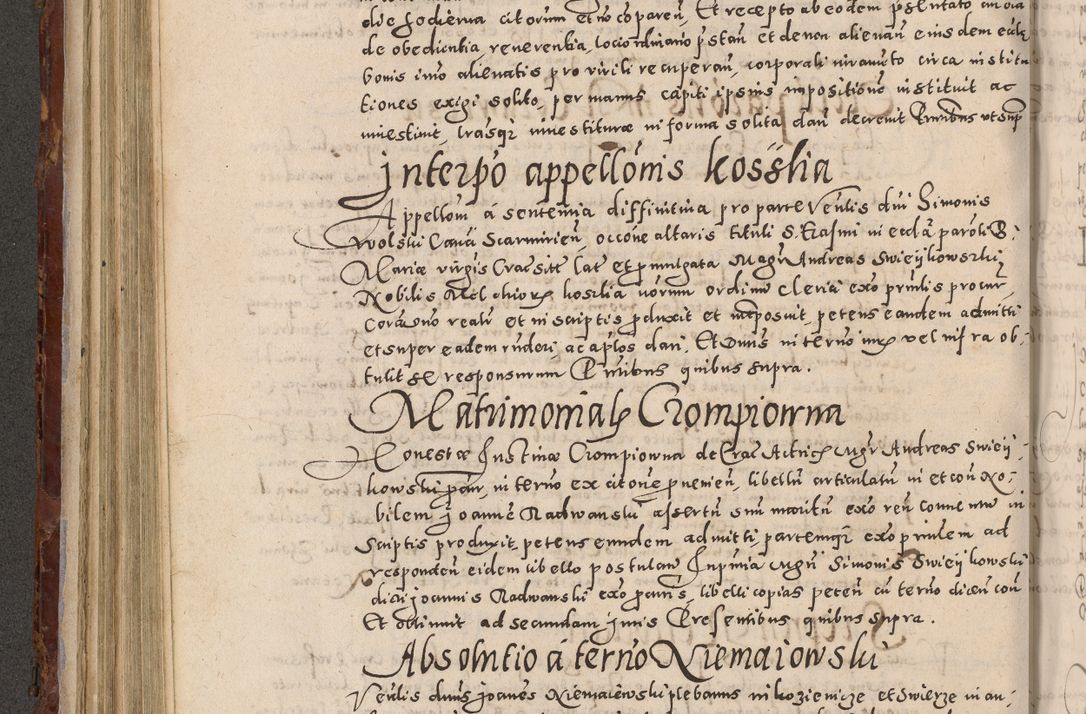 die hodierna citorum et no coparen, Et recepto ab eodem pñtato
de obedientia, reverentia, loci ordinario pstan et de non alienan eiusdem eccle
bonis imo alienatis pro virili recuperan, corporali iuramto circa institu
tiones exigi solito, per manus capiti ipsius impositione instituit ac
investivit, lrasqz investiturae in forma solita dari decrevit Pntibus ut supra
Interpo appellonis Kosslia
Appellom a sententia diffinitiva pro parte Venlis dni Simonis
Wolski Canci Scarmirien, occone altaris tituli S. Erasmi in eccla paroli B:
Mariae virgis Crac sitt lat et promulgata Magr Andreas Swieykowski
Nobilis Melchioris Koslia uorum ordinu Clerici exo prnlis procur
Cora dno reali et in scriptis pduxit et interposuit, petens eandem admitti
et super eadem rnderi, ac aplos dari, Et Dnus in terno iuris vel infra ob-
tulit se responsurum Pntibus quibus supra.
Matrimonialis Crompiowna
Honestae Justinae Crompiowna de Crac Actricis Mgr Andreas Swiey-
kowski procur, in terno ex citone pvenien, libellum articulatu in et con No-
bilem Joanne Radwanski assertu suu maritu exo reu conventu in
Scriptis produxit, petens eundem admitti, partemqz exo prnlem ad
responden eidem libello postulan Inpnia Mgri Simonis Swieykowski
dicti Joannis Radwanski exo procuris, libelli copias peten cu terno dicen con
Et obtinuit ad secundam Juris Presentibus quibus supra.
Absolutio a terno Niemaiowski
Venlis dnus Joanes Niemaiewski plebanus in Kozienicze et Swierze in an-